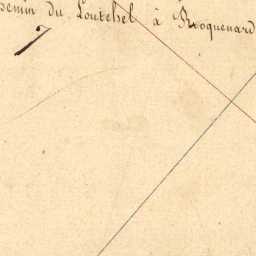 hemin du Loutehel à Roquenard
7